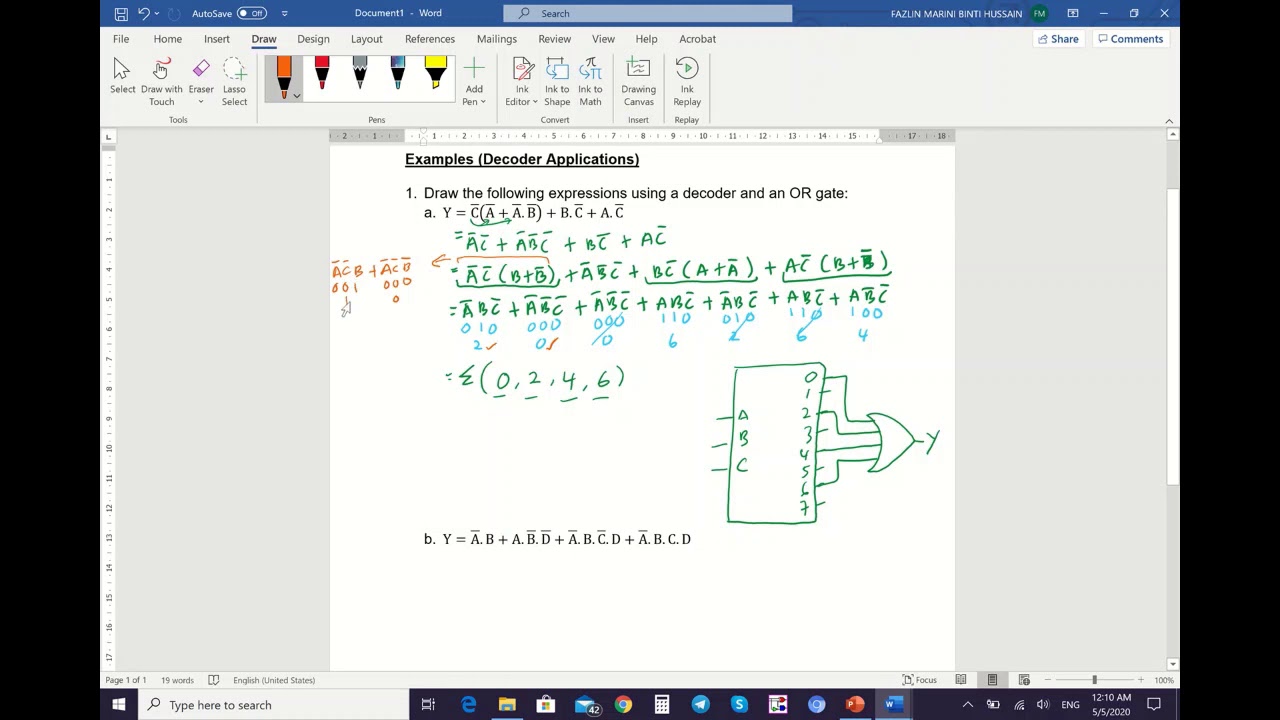 AutoSave Off Document1 - Word Search FAZLIN MARINI BINTI HUSSAIN FM
File Home Insert Draw Design Layout References Mailings Review View Help Acrobat Share Comments
Select Draw with Touch Eraser Lasso Select Add Pen Ink Editor Ink to Shape Ink to Math Drawing Canvas Ink Replay
Tools Pens Convert Insert Replay
2 1 1 2 3 4 5 6 7 8 9 10 11 12 13 14 15 17 18
Examples (Decoder Applications)
1. Draw the following expressions using a decoder and an OR gate:
a. Y = C̅(A̅ + A̅.B̅) + B.C̅ + A.C̅
= A̅C̅ + A̅B̅C̅ + BC̅ + AC̅
A̅C̅B + A̅C̅B̅
001 000
1 0
= A̅C̅(B+B̅) + A̅B̅C̅ + BC̅(A+A̅) + AC̅(B+B̅)
= A̅BC̅ + A̅B̅C̅ + A̅B̅C̅ + ABC̅ + A̅BC̅ + ABC̅ + AB̅C̅
010 000 000 110 010 110 100
2 0 0 6 2 6 4
= Σ(0, 2, 4, 6)
A
B
C
0
1
2
3
4
5
6
7
Y
b. Y = A̅.B + A.B̅.D̅ + A̅.B.C̅.D + A̅.B.C.D
Page 1 of 1 19 words English (United States) Focus 100%
Type here to search 42 12:10 AM
5/5/2020